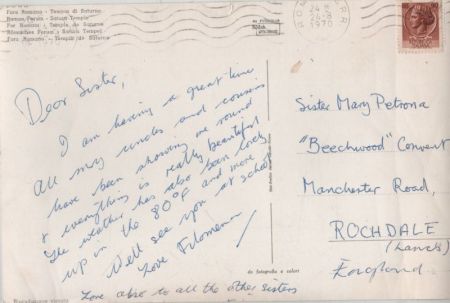 Foro Romano - Tempio di Saturno
Roman Forum - Saturn Temple
For Romain - Temple de Saturne
Römisches Forum - Saturn Tempel
Foro Romano - Templo de Saturno
ROMA
24-8
1970
Dear Sister,
I am having a great time
All my uncles and cousins
have been showing me round
& everything is really beautiful
The weather has also been lovely
up in the 80°F and more
Well see you at school
Love Filomena
Love also to all the other sisters
Sister Mary Petrona
"Beechwood" Convent
Manchester Road,
ROCHDALE
(Lancs)
England
da fotografia a colori